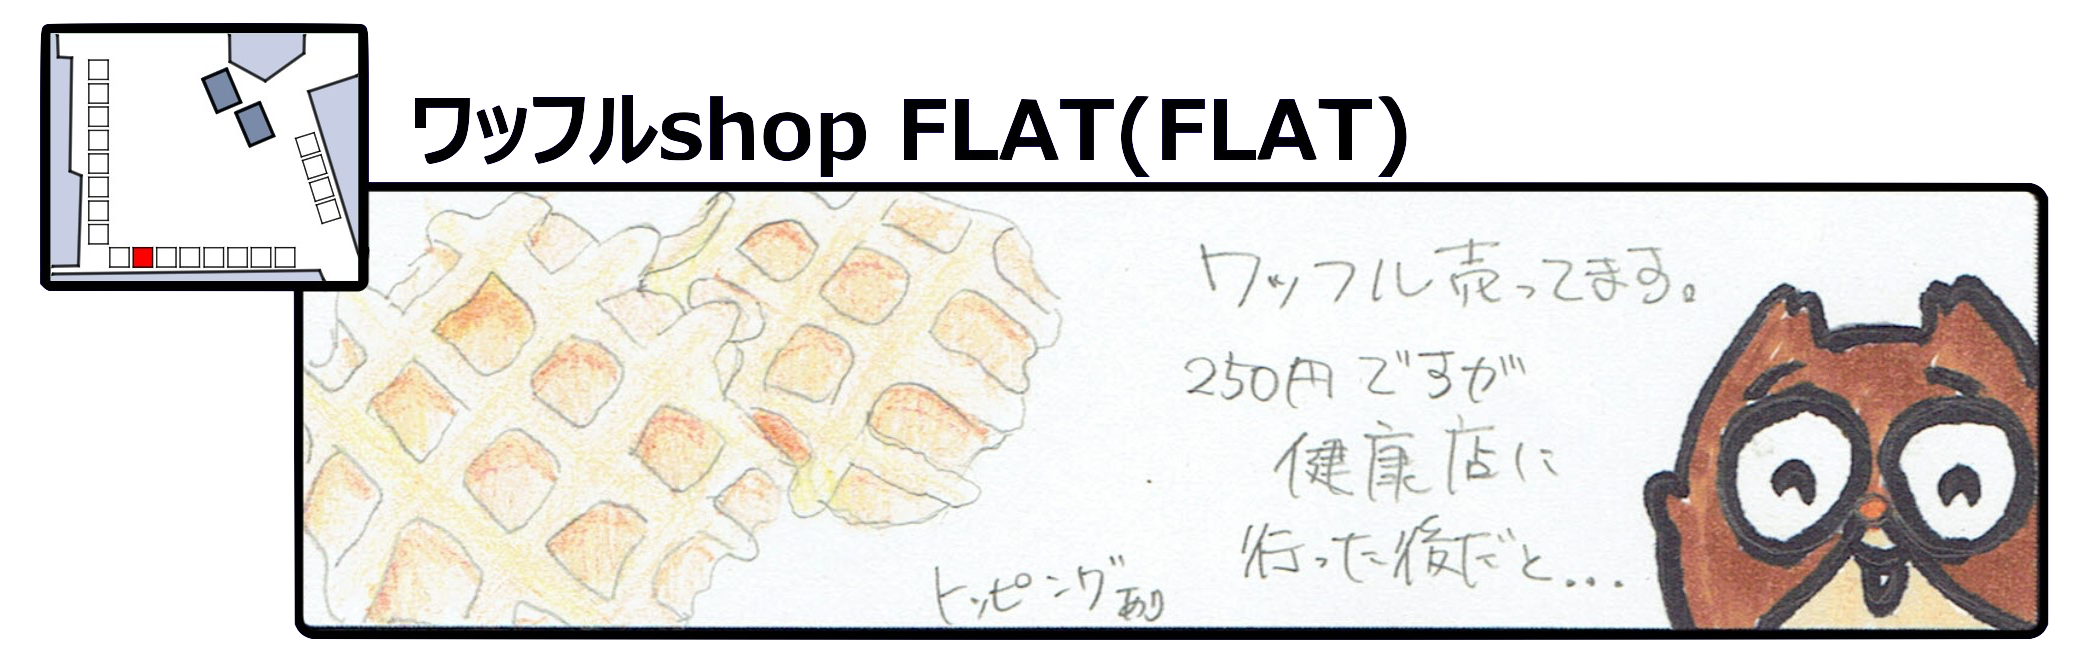 ワッフルshop FLAT(FLAT)
ワッフル売ってます。
250円ですが
健康店に
行った後だと...
トッピングあり